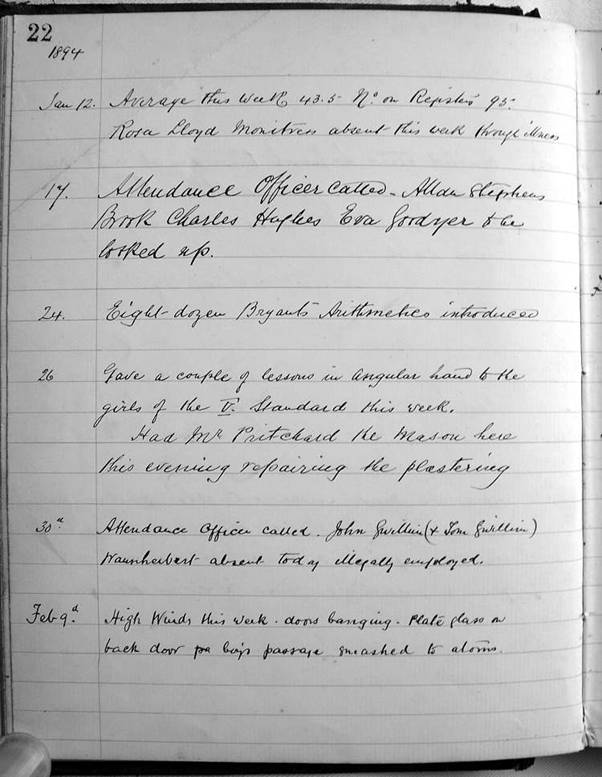 22
1894
Jan 12. Average this week 43.5 No. on Registers 95.
Rosa Lloyd Monitress absent this week through illness
17. Attendance Officer called - Allan Stephens
Brook Charles Hughes Eva Goodyer to be
looked up.
24. Eight dozen Bryant's Arithmetics introduced
26 Gave a couple of lessons in angular hand to the
girls of the V. Standard this week.
Had Mr. Pritchard the Mason here
this evening repairing the plastering
30th Attendance Officer called. John Gwillim (& Tom Gwillim)
absent today illegally employed.
Feb 9th. High Winds this week - doors banging - Plate glass on
back door boys passage smashed to atoms.